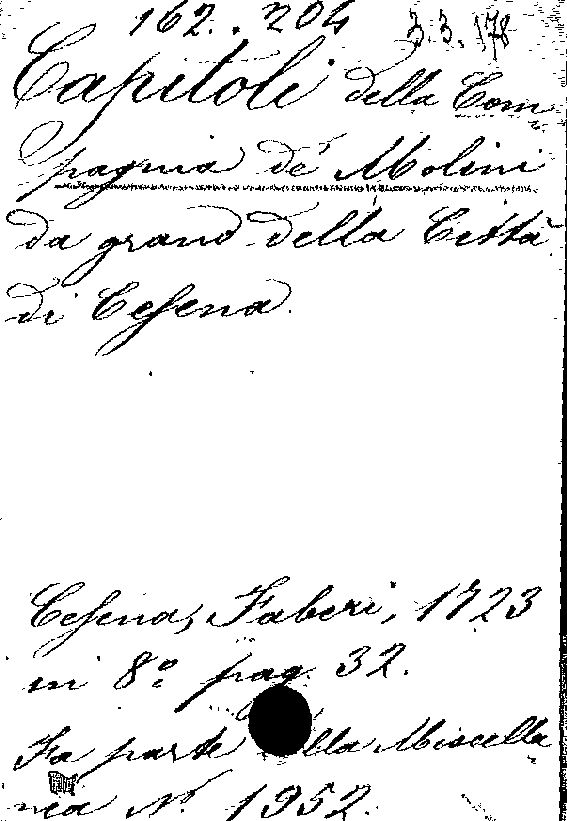 162. . 204 3.3.178
Capitoli della Com
pagnia de' Molini
da grano della Città
di Cesena.
Cesena, Faberi, 1723
in 8º pag. 32.
Fa parte della Miscella
nea Nº 1952.